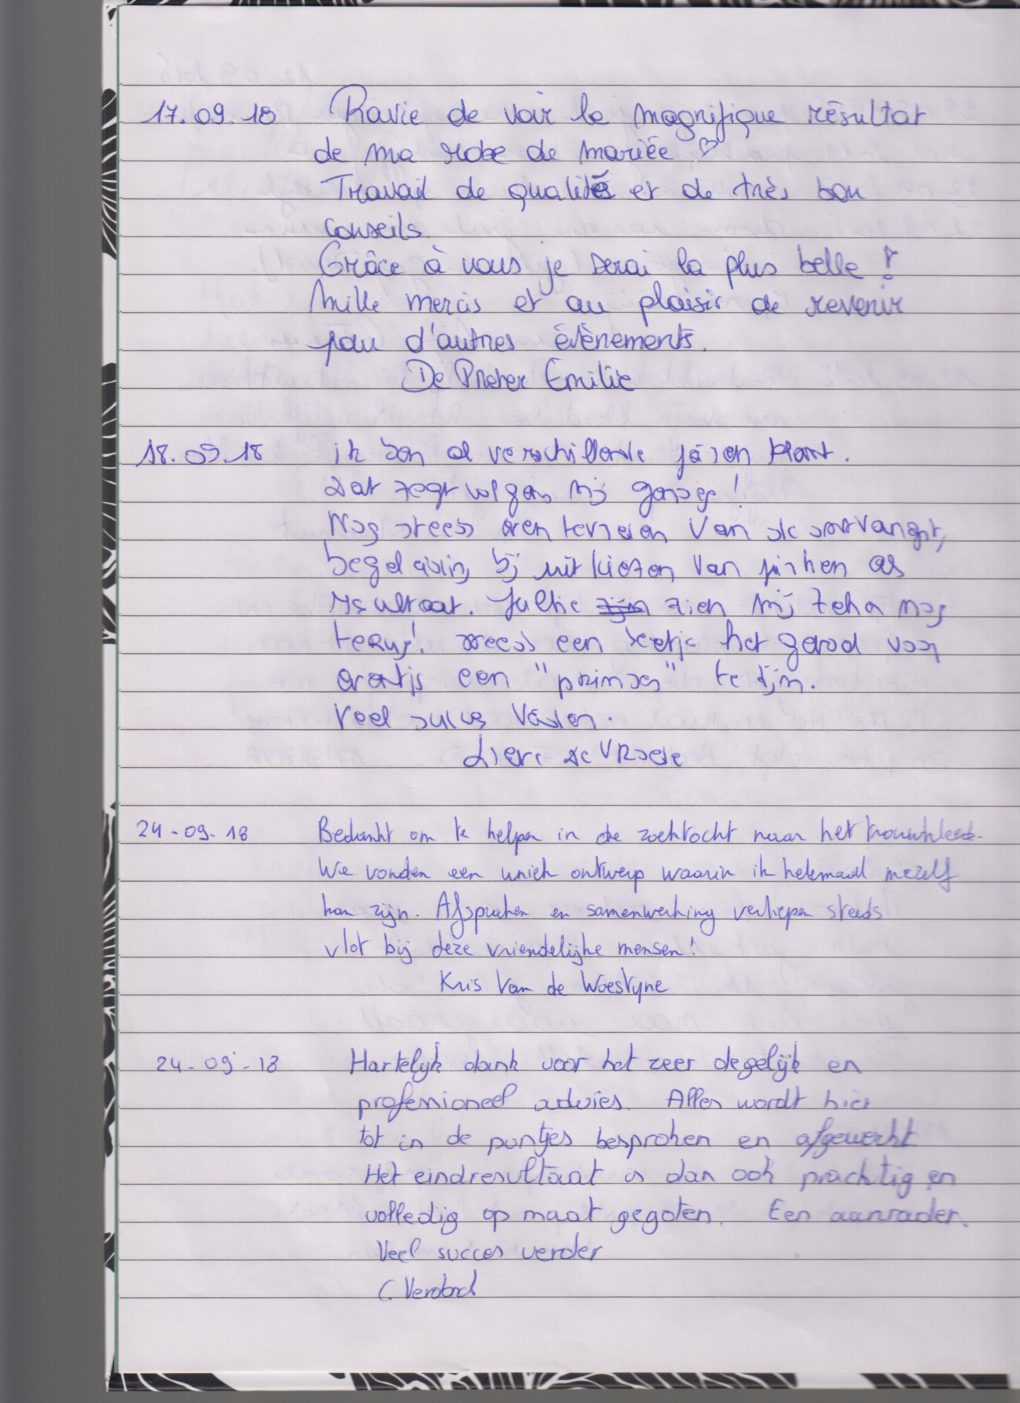 17.09.18 Ravie de voir le magnifique résultat
de ma robe de mariée ♡
Travail de qualité et de très bon
conseils.
Grâce à vous je serai la plus belle !
Mille mercis et au plaisir de revenir
pour d'autres évènements.
De Preter Emilie
18.09.18 ik ben al verschillende jaren klant.
Dat zegt volgens mij genoeg!
Nog steeds even tevreden van de ontvangst,
begeleiding bij uitkiezen van pinken als
resultaat. Jullie zien mij zeker nog
terug! steeds een beetje het gevoel van
eventjes een "prinses" te zijn.
Veel succes verder.
Lieve De Vroede
24-09-18 Bedankt om te helpen in de zoektocht naar het trouwkleed.
We vonden een uniek ontwerp waarin ik helemaal mezelf
kan zijn. Afspraken en samenwerking verliepen steeds
vlot bij deze vriendelijke mensen!
Kris Van de Woestyne
24-09-18 Hartelijk dank voor het zeer degelijk en
professioneel advies. Alles wordt hier
tot in de puntjes besproken en afgewerkt
Het eindresultaat is dan ook prachtig en
volledig op maat gegoten. Een aanrader.
Veel succes verder
C.